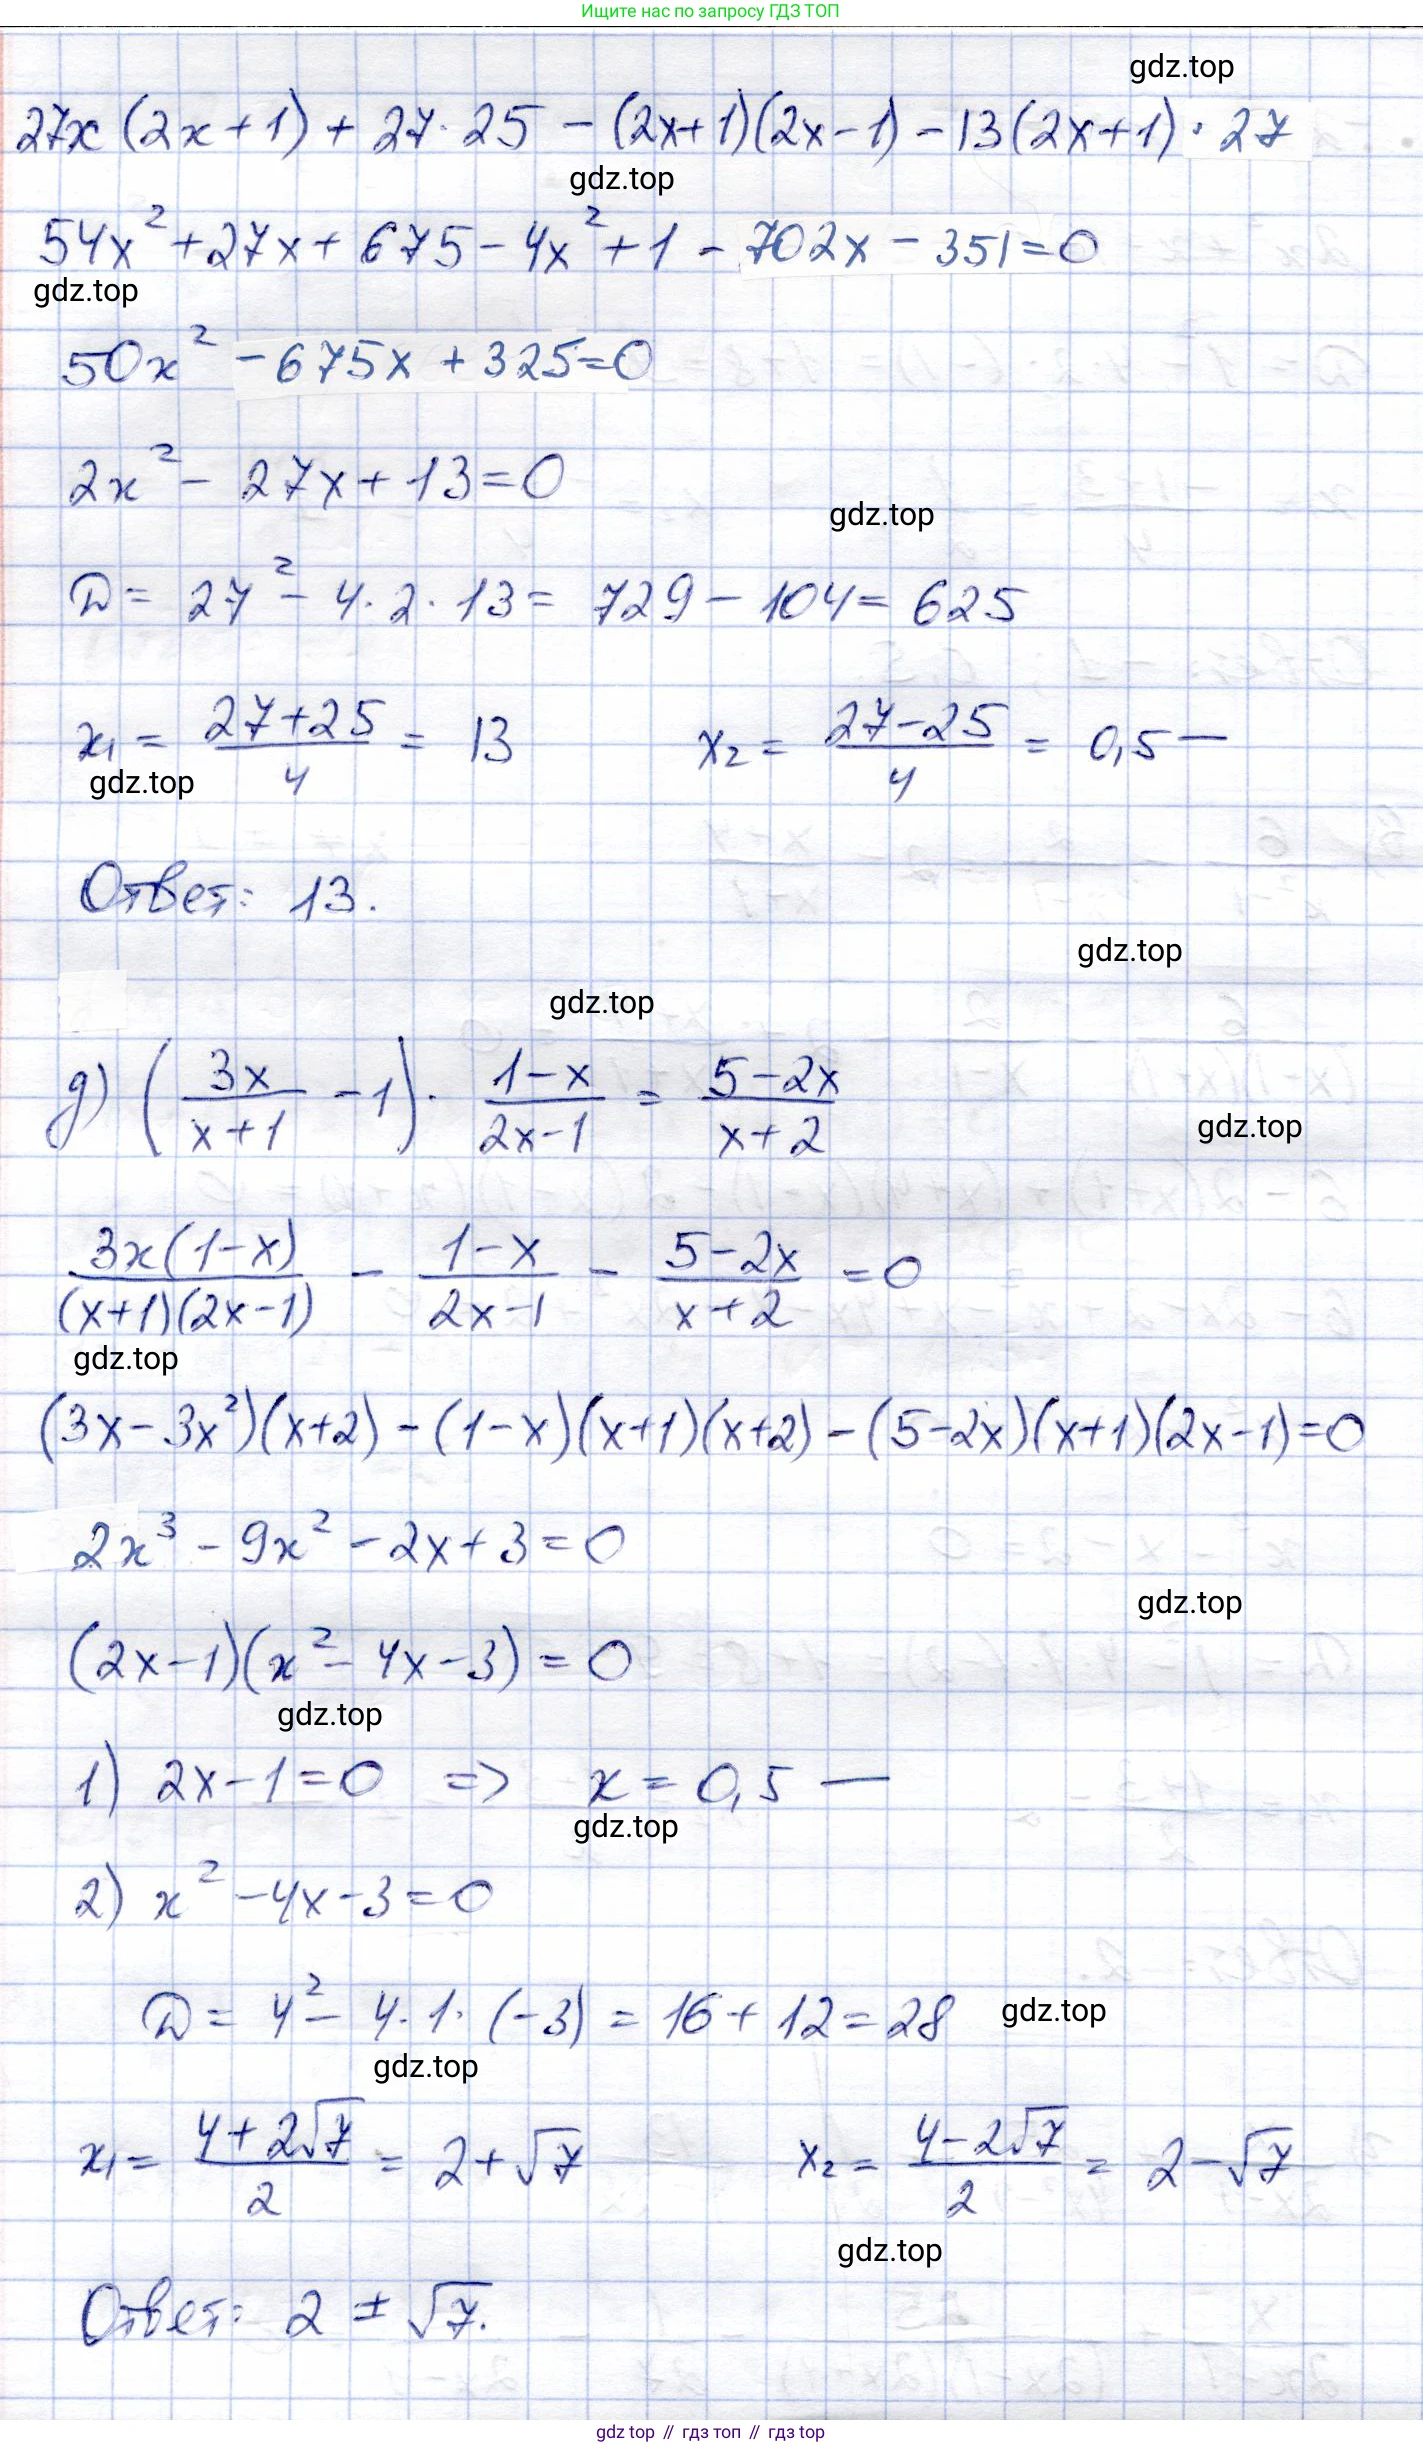 Ищите нас по запросу ГДЗ ТОП
gdz.top
27x (2x + 1) + 27 · 25 - (2x+1)(2x-1) - 13(2x+1) · 27
gdz.top
54x² + 27x + 675 - 4x² + 1 - 702x - 351 = 0
gdz.top
50x² - 675x + 325 = 0
2x² - 27x + 13 = 0
gdz.top
D = 27² - 4 · 2 · 13 = 729 - 104 = 625
x₁ = (27+25)/4 = 13 x₂ = (27-25)/4 = 0,5 —
gdz.top
Ответ: 13.
gdz.top
gdz.top
д) (3x/(x+1) - 1) · (1-x)/(2x-1) = (5-2x)/(x+2)
gdz.top
3x(1-x)/((x+1)(2x-1)) - (1-x)/(2x-1) - (5-2x)/(x+2) = 0
gdz.top
(3x-3x²)(x+2) - (1-x)(x+1)(x+2) - (5-2x)(x+1)(2x-1) = 0
2x³ - 9x² - 2x + 3 = 0
gdz.top
(2x-1)(x² - 4x - 3) = 0
gdz.top
1) 2x-1=0 => x = 0,5 —
gdz.top
2) x² - 4x - 3 = 0
D = 4² - 4 · 1 · (-3) = 16 + 12 = 28
gdz.top
gdz.top
x₁ = (4+2√7)/2 = 2+√7 x₂ = (4-2√7)/2 = 2-√7
gdz.top
Ответ: 2 ± √7.
gdz top // гдз топ // гдз top